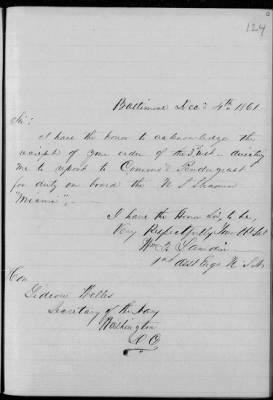 124
Baltimore Dec. 4th 1861
Sir:
I have the honor to acknowledge the
receipt of your order of the 3d inst - directing
me to report to Commo. Pendergrast
for duty on board the U S Steamer
"Miami", -
I have the Honor Sir, to be,
Very Respectfully Your Obt Svt
Wm
1st Asst Engr U. S. N.
Hon
Gideon Welles
Secretary of the Navy
Washington
D C